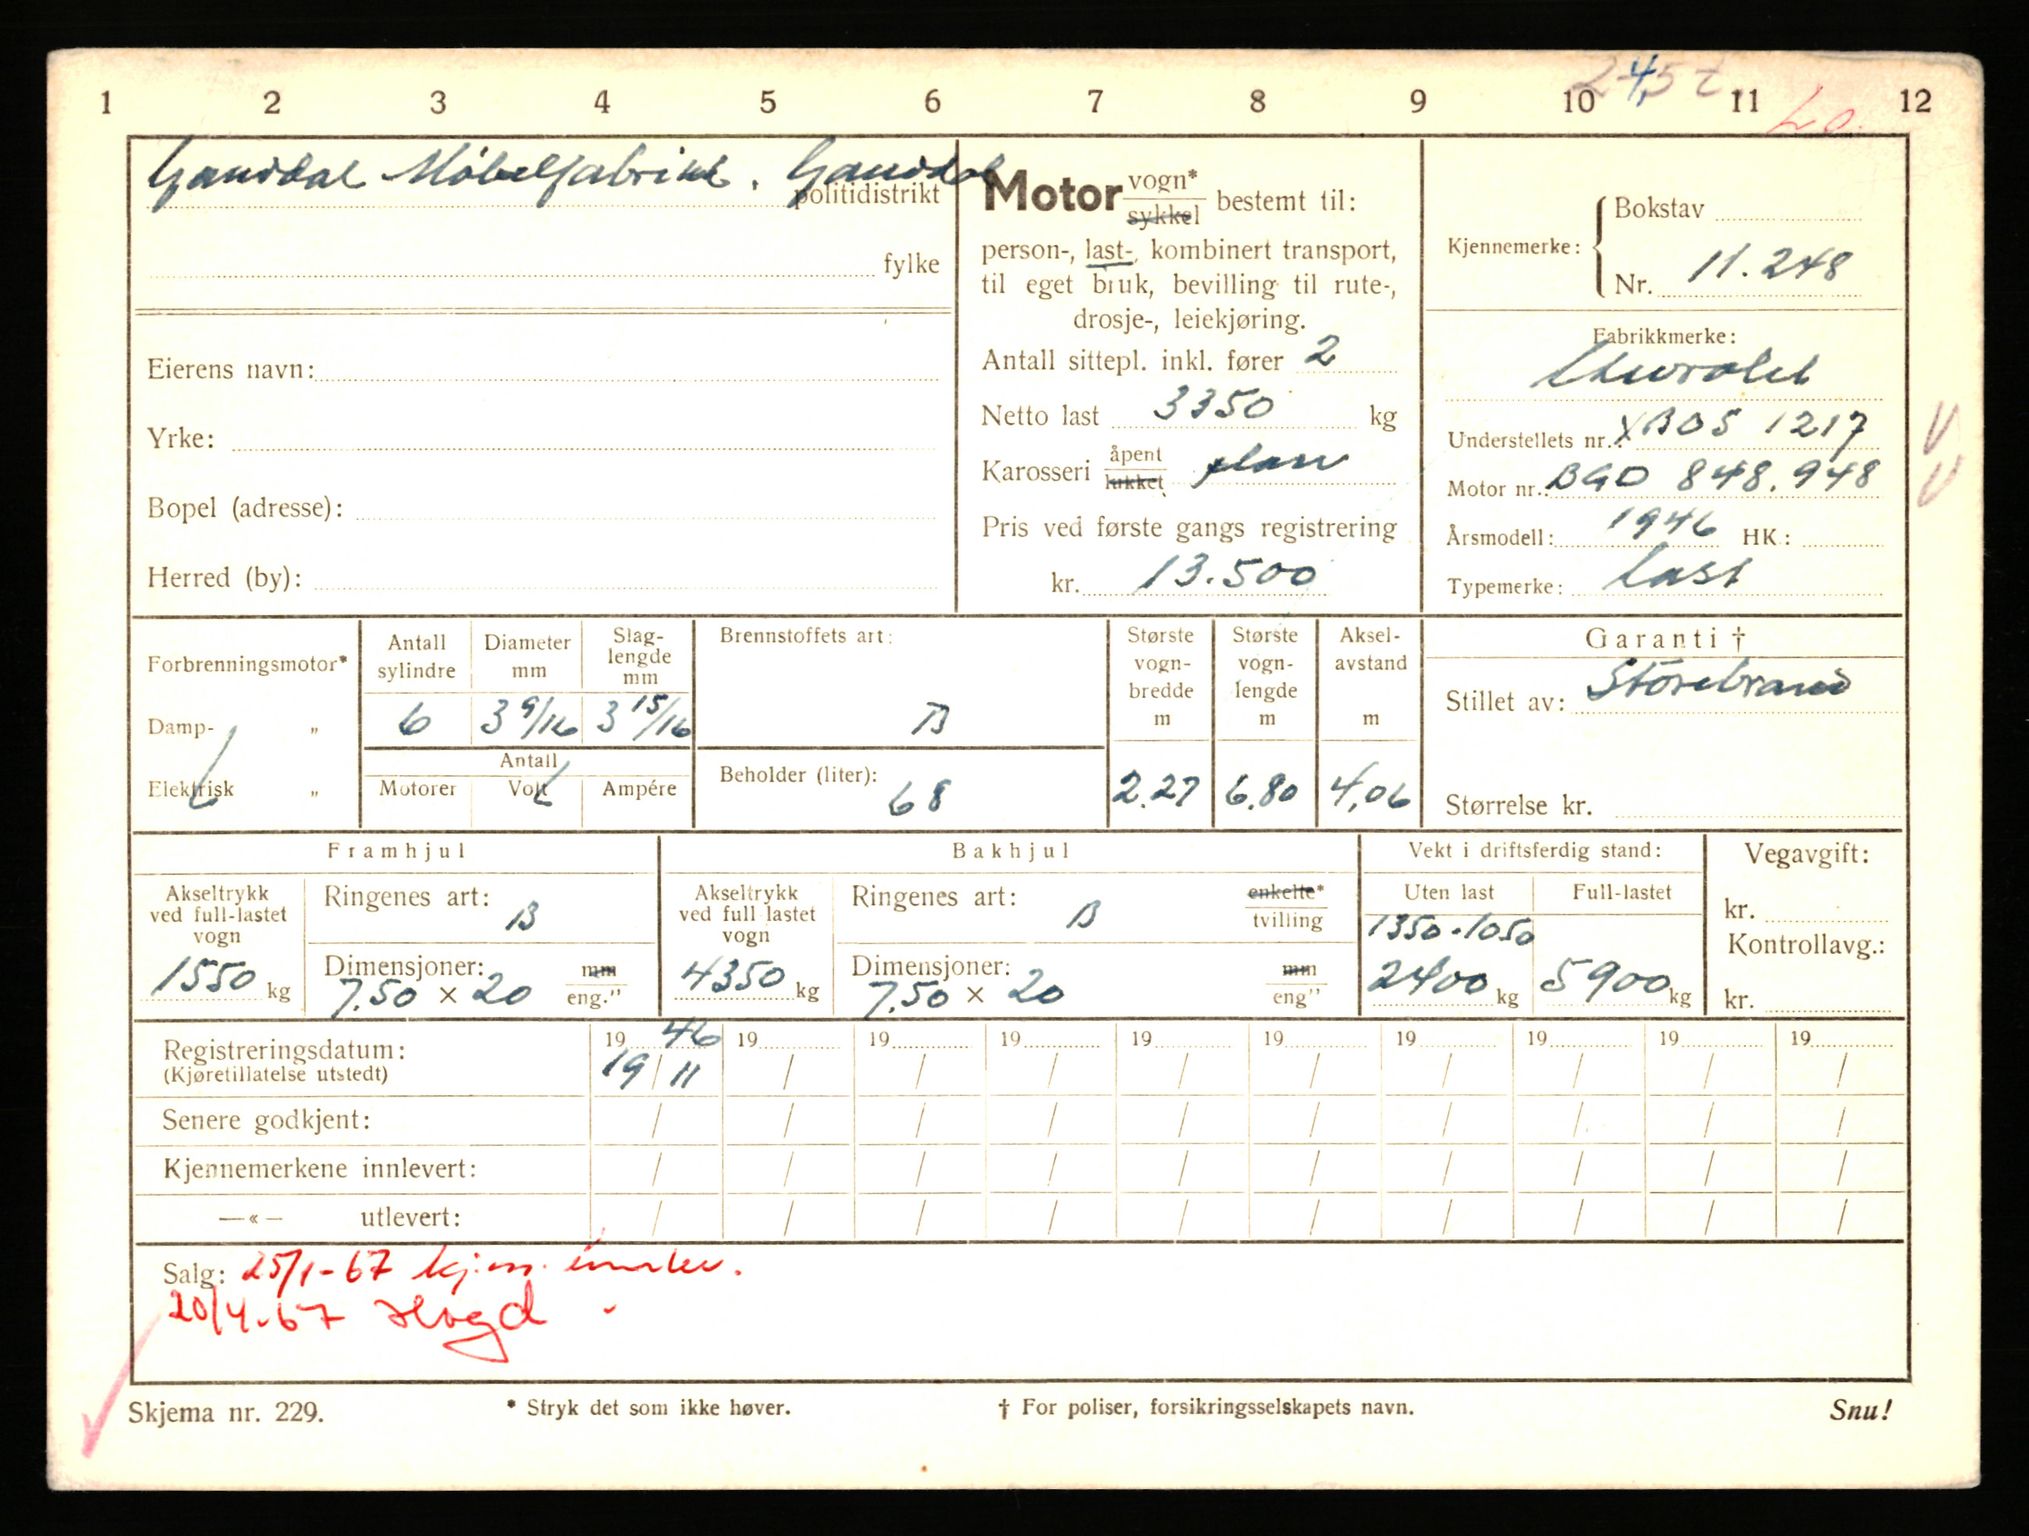 1 2 3 4 5 6 7 8 9 10 11 12
Gandal Møbelfabrikk. Gandal
politidistrikt
fylke
Eierens navn:
Yrke:
Bopel (adresse):
Herred (by):
Motor vogn* / sykkel bestemt til:
person-, last-, kombinert transport,
til eget bruk, bevilling til rute-,
drosje-, leiekjøring.
Antall sittepl. inkl. fører 2
Netto last 3350 kg
Karosseri åpent / lukket plan
Pris ved første gangs registrering
kr. 13.500
Kjennemerke: Bokstav
Nr. 11.248
Fabrikkmerke:
Chevrolet
Understellets nr.: XBOS 1217
Motor nr.: BGD 848.948
Årsmodell: 1946 HK.:
Typemerke: Last
Forbrenningsmotor*
Damp- „
Elektrisk „
Antall sylindre Diameter mm Slag-lengde mm
6 3 9/16 3 15/16
Antall
Motorer Volt Ampére
Brennstoffets art:
B
Beholder (liter):
68
Største vogn-bredde m Største vogn-lengde m Aksel-avstand m
2.27 6.80 4,06
Garanti †
Stillet av: Storebrand
Størrelse kr.
Framhjul
Akseltrykk ved full-lastet vogn
1550 kg
Ringenes art: B
Dimensjoner: mm / eng."
7.50 × 20
Bakhjul
Akseltrykk ved full lastet vogn
4350 kg
Ringenes art: B enkelte* / tvilling
Dimensjoner: mm / eng"
7.50 × 20
Vekt i driftsferdig stand:
Uten last Full-lastet
1350-1050
2400 kg 5900 kg
Vegavgift:
kr.
Kontrollavg.:
kr.
19 46 19 19 19 19 19 19 19 19 19
Registreringsdatum: 19/11 / / / / / / / / /
(Kjøretillatelse utstedt)
Senere godkjent: / / / / / / / / / /
Kjennemerkene innlevert: / / / / / / / / / /
—«— utlevert: / / / / / / / / / /
Salg: 25/1-67 kj.m. innlev.
20/4-67 Hogd
Skjema nr. 229. * Stryk det som ikke høver. † For poliser, forsikringsselskapets navn. Snu!